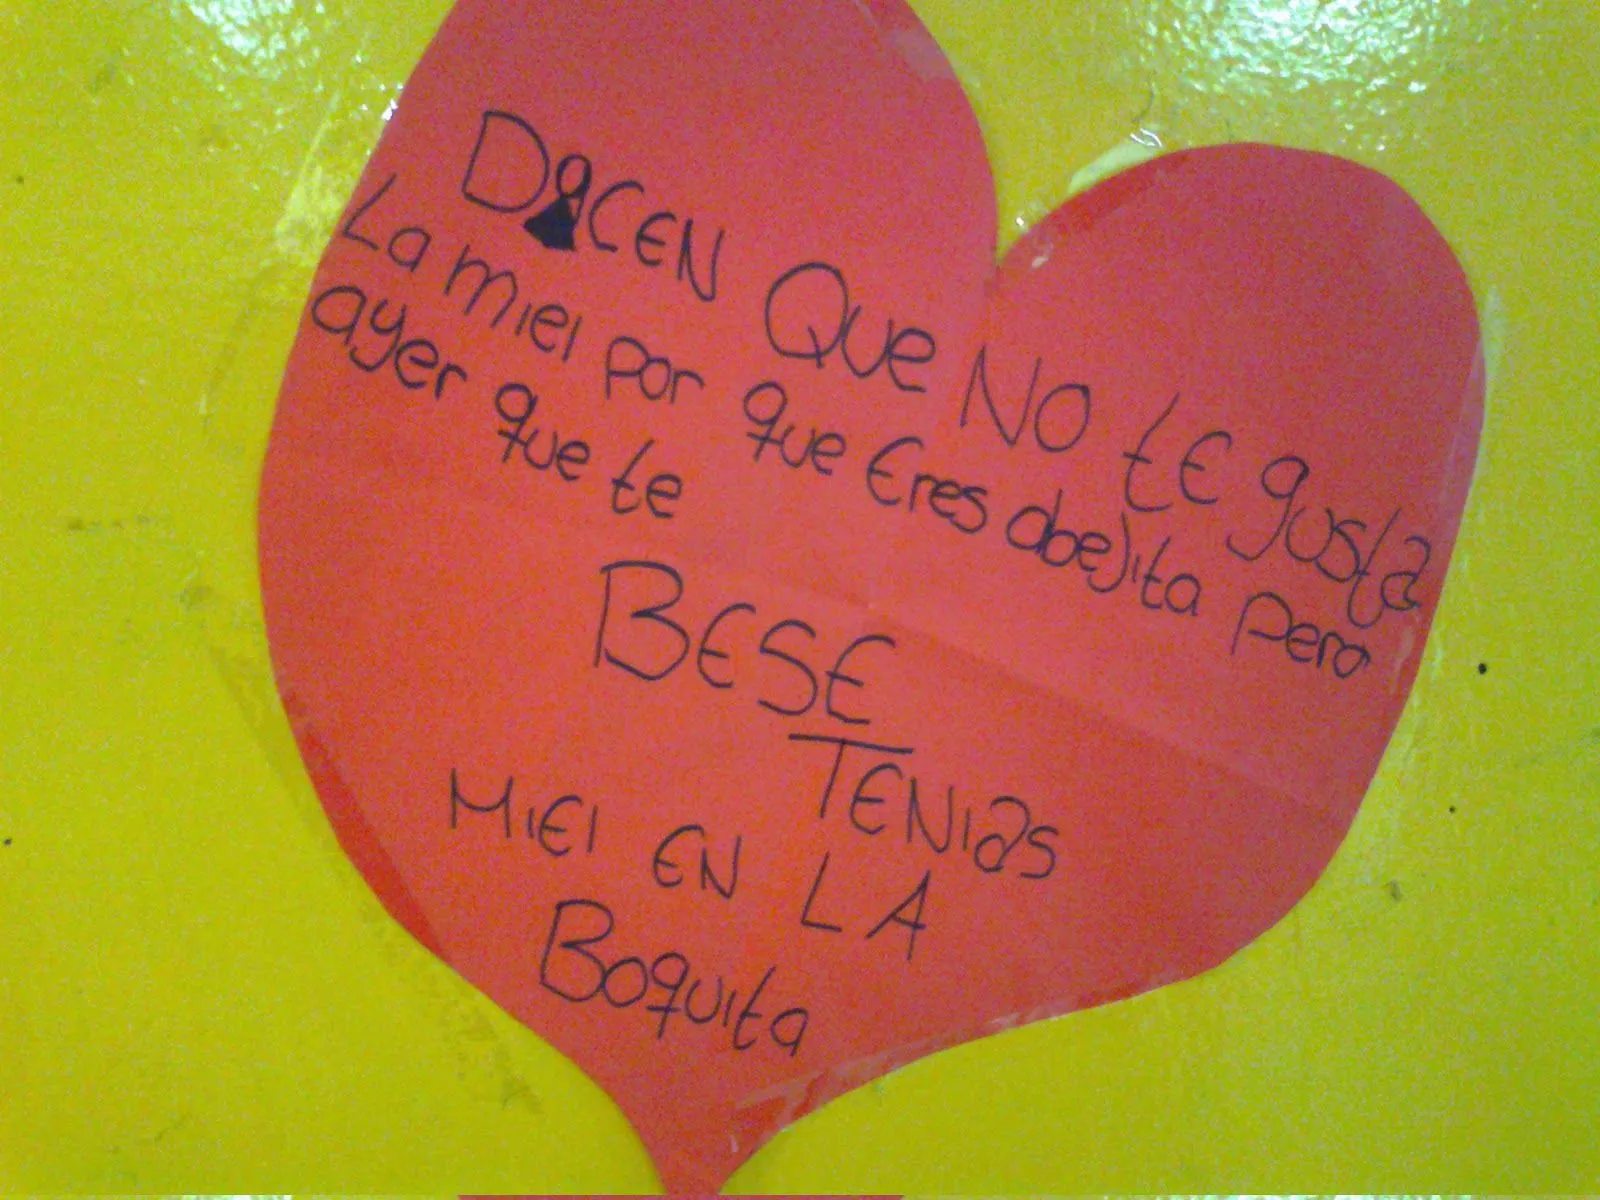 DICEN Que NO tE gusta
La miel por que Eres abejita pero
ayer que te
BESE
TENias
MIEl EN LA
Boquita